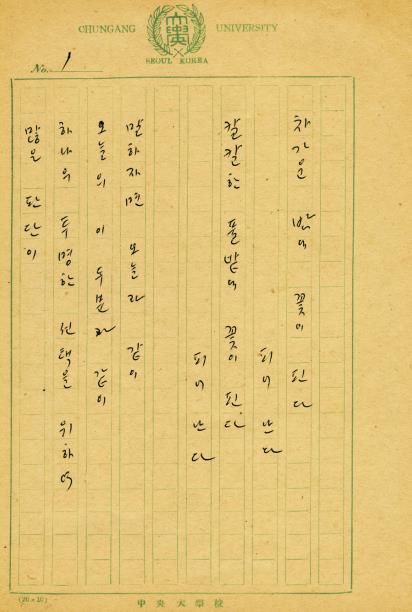 CHUNGANG UNIVERSITY
SEOUL KOREA
No. 1
차가운 밤에 꽃이 핀다
피어난다
캄캄한 풀밭에 꽃이 핀다
피어난다
말하자면 오늘과 같이
오늘의 이 같이
하나의 투명한 선택을 위하여
많은 판단이
(20×10)
中央大學校